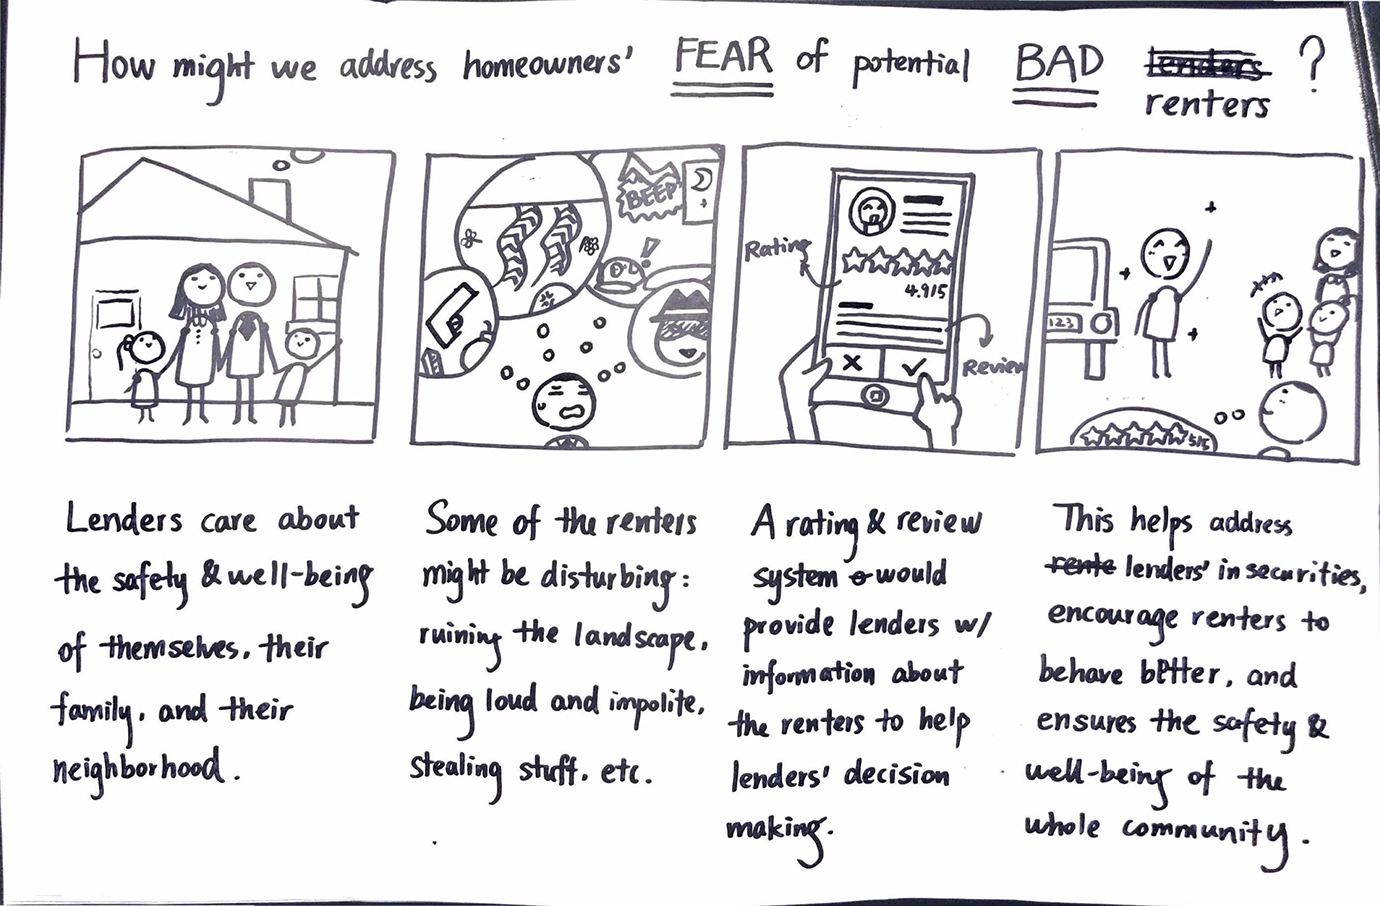 How might we address homeowners' FEAR of potential BAD lenders ?
renters
BEEP
Rating
4.9/5
Review
123
5/5
Lenders care about
the safety & well-being
of themselves, their
family, and their
neighborhood.
Some of the renters
might be disturbing:
ruining the landscape,
being loud and impolite,
stealing stuff, etc.
A rating & review
system would
provide lenders w/
information about
the renters to help
lenders' decision
making.
This helps address
rente lenders' insecurities,
encourage renters to
behave better, and
ensures the safety &
well-being of the
whole community.